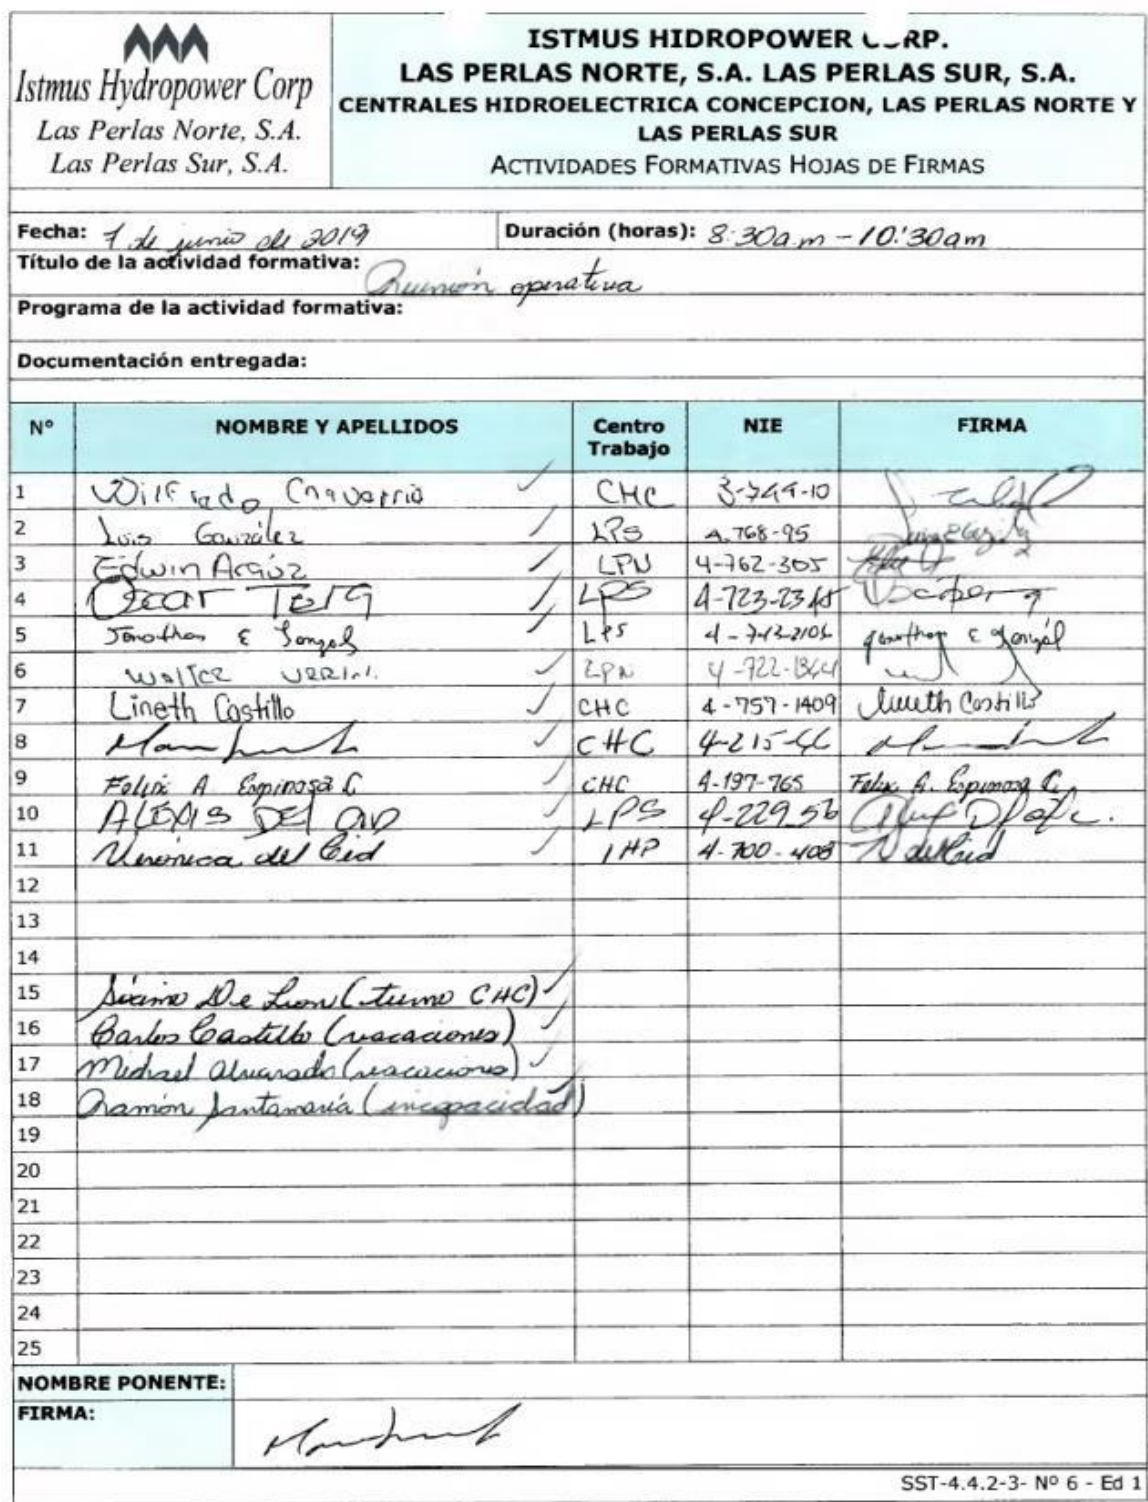 Istmus Hydropower Corp
Las Perlas Norte, S.A.
Las Perlas Sur, S.A.
ISTMUS HIDROPOWER CORP.
LAS PERLAS NORTE, S.A. LAS PERLAS SUR, S.A.
CENTRALES HIDROELECTRICA CONCEPCION, LAS PERLAS NORTE Y
LAS PERLAS SUR
ACTIVIDADES FORMATIVAS HOJAS DE FIRMAS
Fecha: 7 de junio de 2019 Duración (horas): 8:30am - 10:30am
Título de la actividad formativa: Reunión operativa
Programa de la actividad formativa:
Documentación entregada:
Nº NOMBRE Y APELLIDOS Centro Trabajo NIE FIRMA
1 Wilfredo Chavarria CHC
2 Luis González LPS 4-768-95
3 Edwin Araúz LPN 4-762-305
4 Oscar LPS
5 Jonathan E LPS Jonathan E
6 Walter LPN
7 Lineth Castillo CHC 4-757-1409 Lineth Castillo
8 CHC
9 Felix A Espinosa C CHC 4-197-765 Felix A. Espinosa C.
10 ALEXIS DEL CID LPS 4-229-56
11 Veronica del Cid IHP 4-700-408 V del Cid
12
13
14
15 De Leon (turno CHC)
16 Carlos Castillo (vacaciones)
17 Michael Alvarado (vacaciones)
18 Ramón Santamaría (incapacidad)
19
20
21
22
23
24
25
NOMBRE PONENTE:
FIRMA:
SST-4.4.2-3- Nº 6 - Ed 1